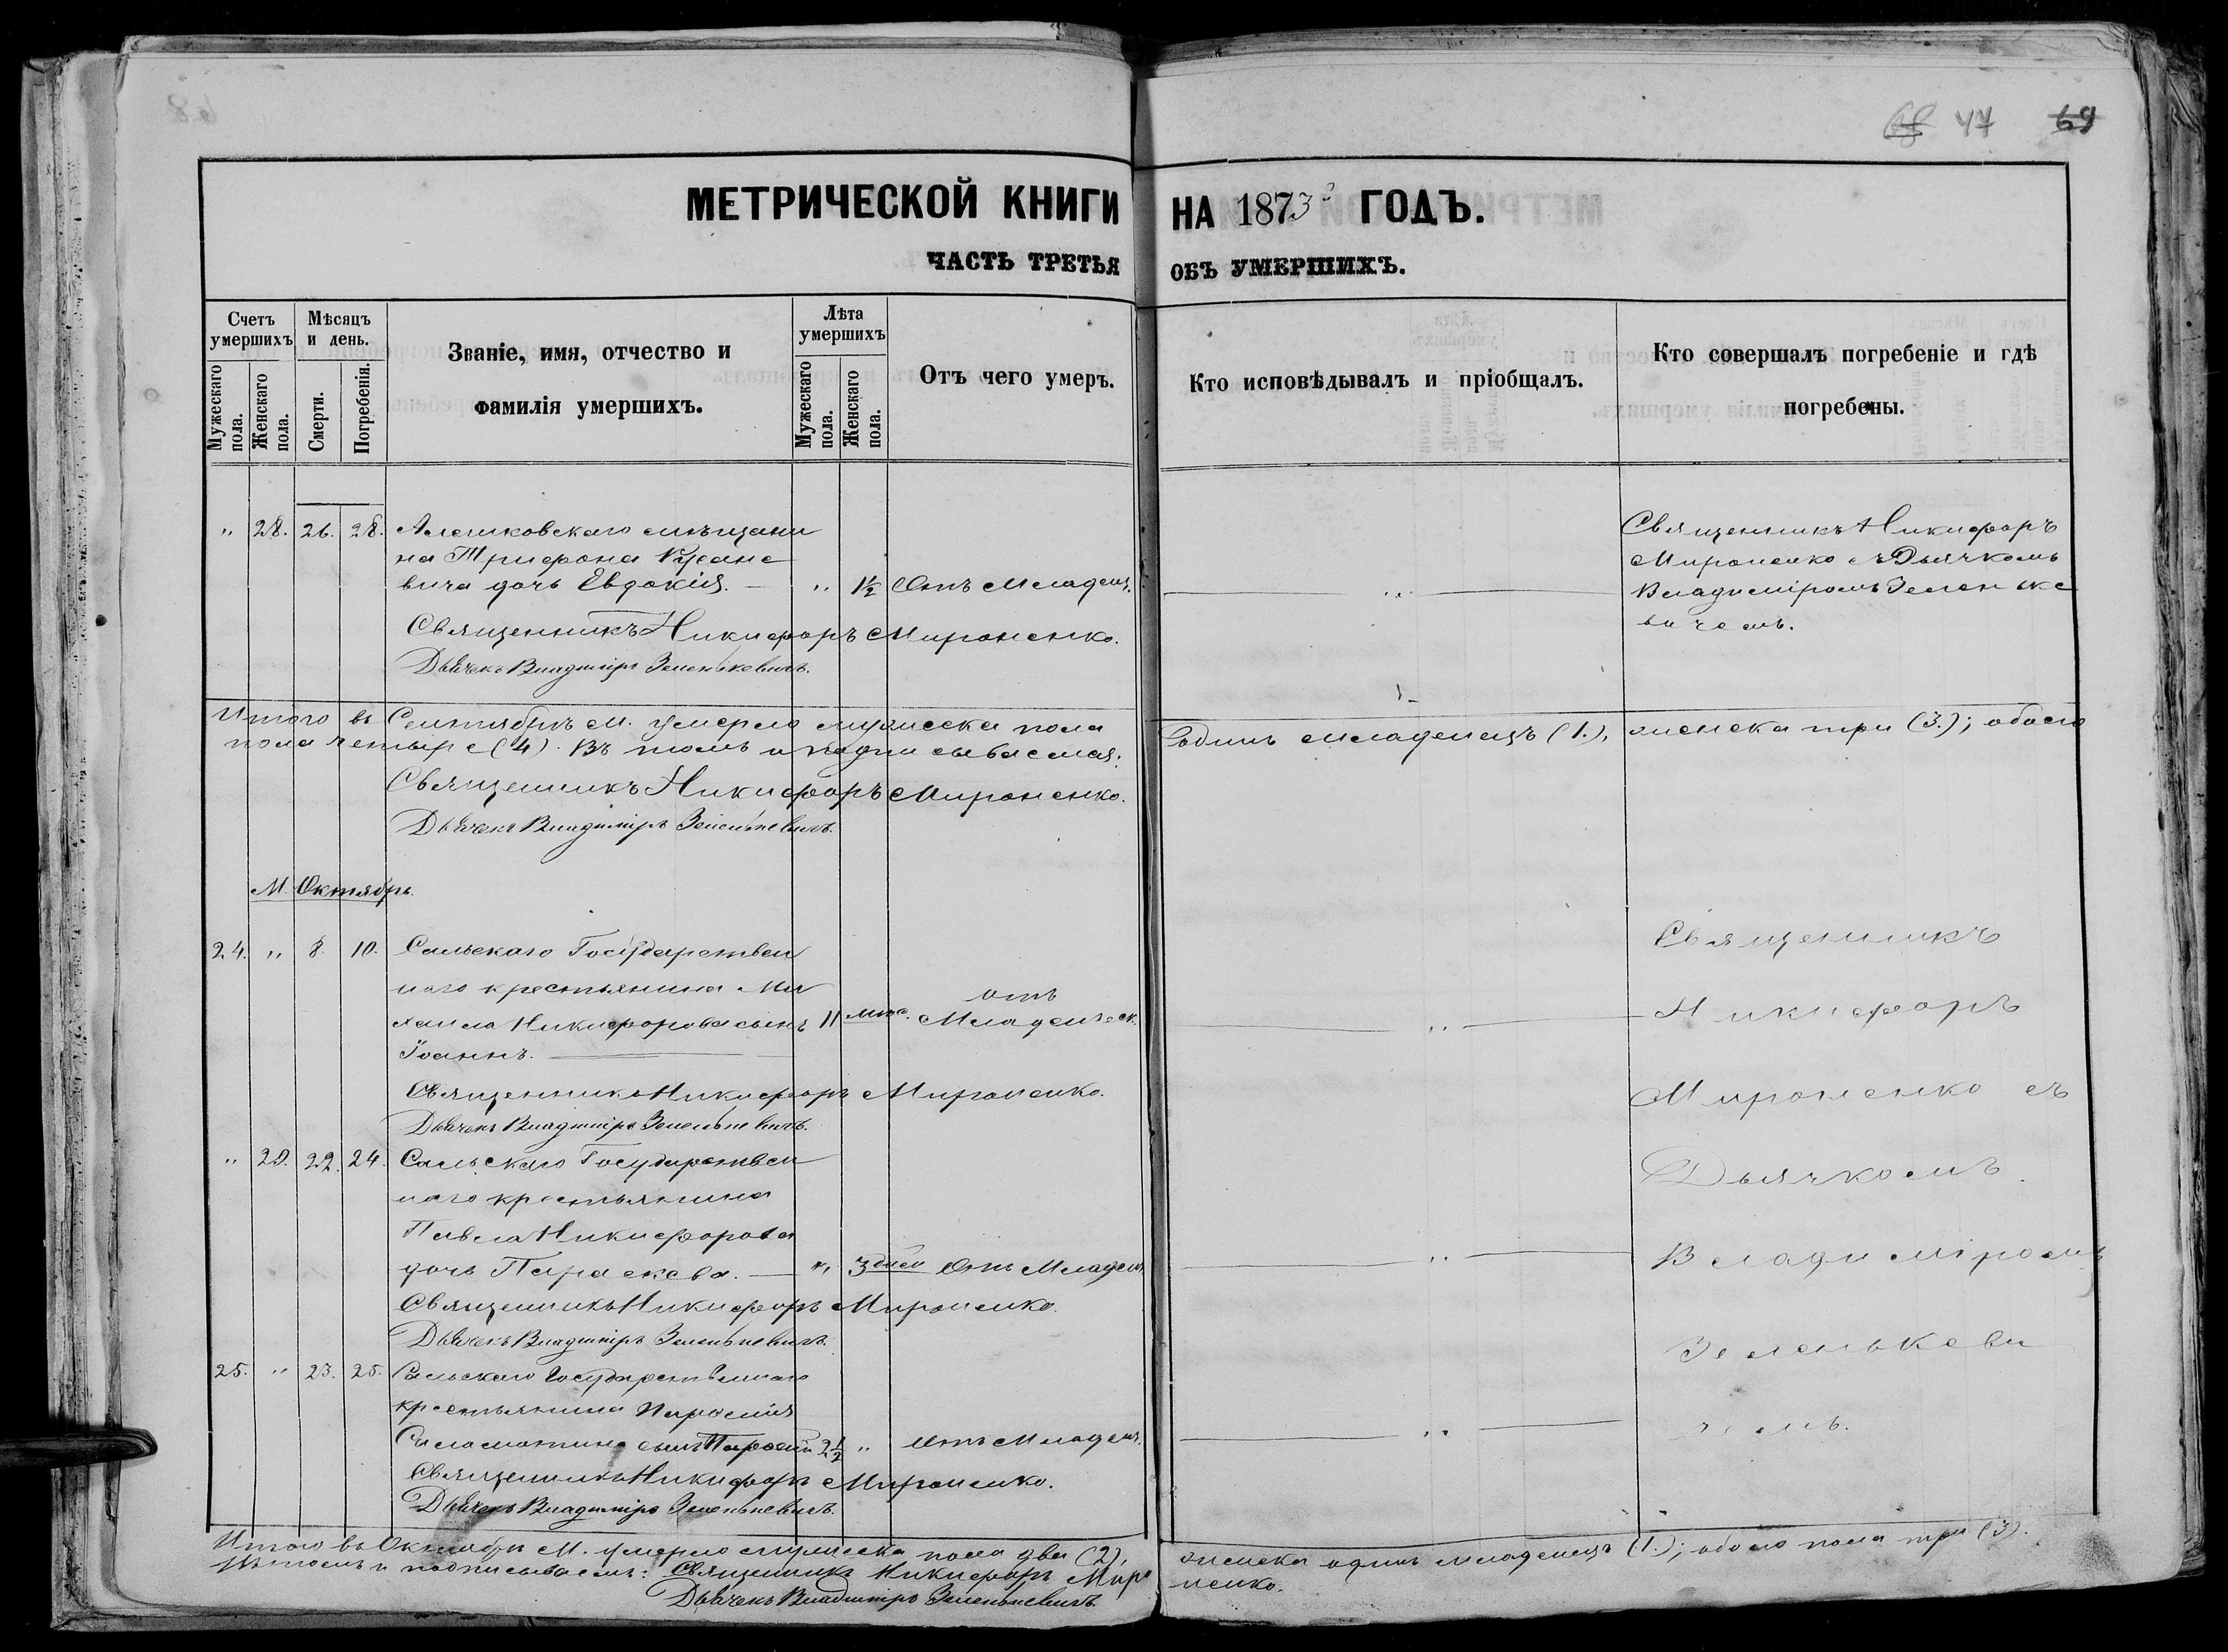 68 47 69
МЕТРИЧЕСКОЙ КНИГИ НА 1873 ГОДЪ.
ЧАСТЬ ТРЕТЬЯ ОБЪ УМЕРШИХЪ.
Счетъ умершихъ
Мужескаго пола.
Женскаго пола.
Мѣсяцъ и день.
Смерти.
Погребенія.
Званіе, имя, отчество и
фамилія умершихъ.
Лѣта умершихъ
Мужескаго пола.
Женскаго пола.
Отъ чего умеръ.
Кто исповѣдывалъ и пріобщалъ.
Кто совершалъ погребеніе и гдѣ
погребены.
" 28. 26. 28. Алешковскаго мѣщани
на Трифона
вича дочь Евдокія. — " 1½ Отъ Младенч. — " —
Священникъ Никифоръ
Мироненко съ Дьячкомъ
Владиміромъ Зеленьке
вичемъ.
Священникъ Никифоръ Мироненко.
Дьячекъ Владиміръ Зеленькевичъ.
Итого въ Сентябрѣ М. умерло мужеска пола одинъ младенецъ (1.), женска три (3.); обоего
пола четыре (4). Въ томъ и подписываемся:
Священникъ Никифоръ Мироненко.
Дьячекъ Владиміръ Зеленькевичъ.
М. Октябрь.
24. " 8. 10. Сальскаго Государствен
наго крестьянина Ми
хаила Никифорова сынъ 11 мѣс. отъ Младенческ. — " —
Іоаннъ. —
Священникъ Никифоръ Мироненко.
Дьячекъ Владиміръ Зеленькевичъ.
" 29. 22. 24. Сальскаго Государствен
наго крестьянина
Павла Никифорова
дочь Параскева. — " 3 дней Отъ Младенч. — " —
Священникъ Никифоръ Мироненко.
Дьячекъ Владиміръ Зеленькевичъ.
25. " 23. 25. Сальскаго Государственнаго
крестьянина
сынъ 2½ " Отъ Младенч. — " —
Священникъ Никифоръ Мироненко.
Дьячекъ Владиміръ Зеленькевичъ.
Священникъ
Никифоръ
Мироненко съ
Дьячкомъ
Владиміромъ
Зеленькеви
чемъ.
Итого въ Октябрѣ М. умерло мужеска пола два (2), женска одинъ младенецъ (1.); обоего пола три (3).
Въ томъ и подписываемъ: Священникъ Никифоръ Мироненко.
Дьячекъ Владиміръ Зеленькевичъ.